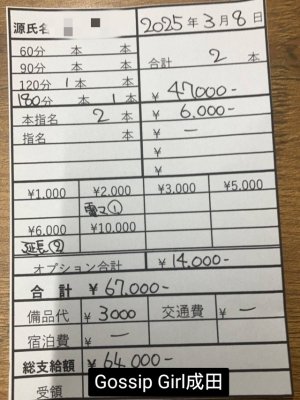 源氏名 2025年3月8日
60分 本 本 合計 2 本
90分 本 本
120分 1本 本 ¥ 47000-
180分 本 1本 ¥ 6,000-
本指名 2 本 ¥ ー
指名 本 ¥
¥
¥1,000 ¥2,000 ¥3,000 ¥5,000
電マ①
¥6,000 ¥10,000
延長②
オプション合計 ¥ 14,000-
合計 ¥ 67,000-
備品代 ¥ 3000 交通費 ¥ ー
宿泊費 ¥ ー
総支給額 ¥ 64,000-
受領
Gossip Girl成田